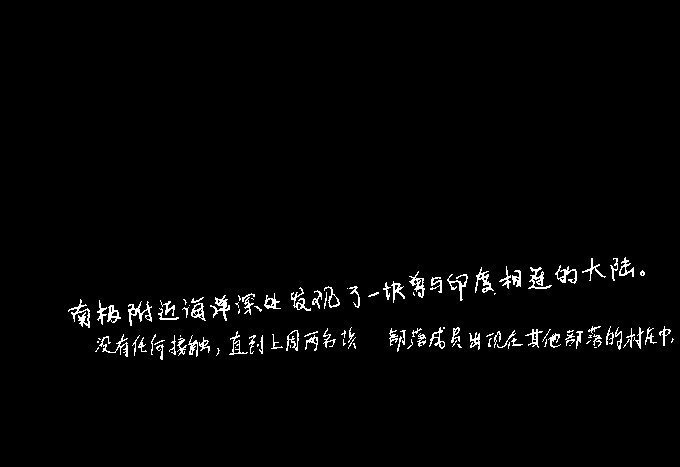 南极附近海洋深处发现了一块曾与印度相连的大陆。
没有任何接触，直到上周两名该 部落成员出现在其他部落的村庄中，